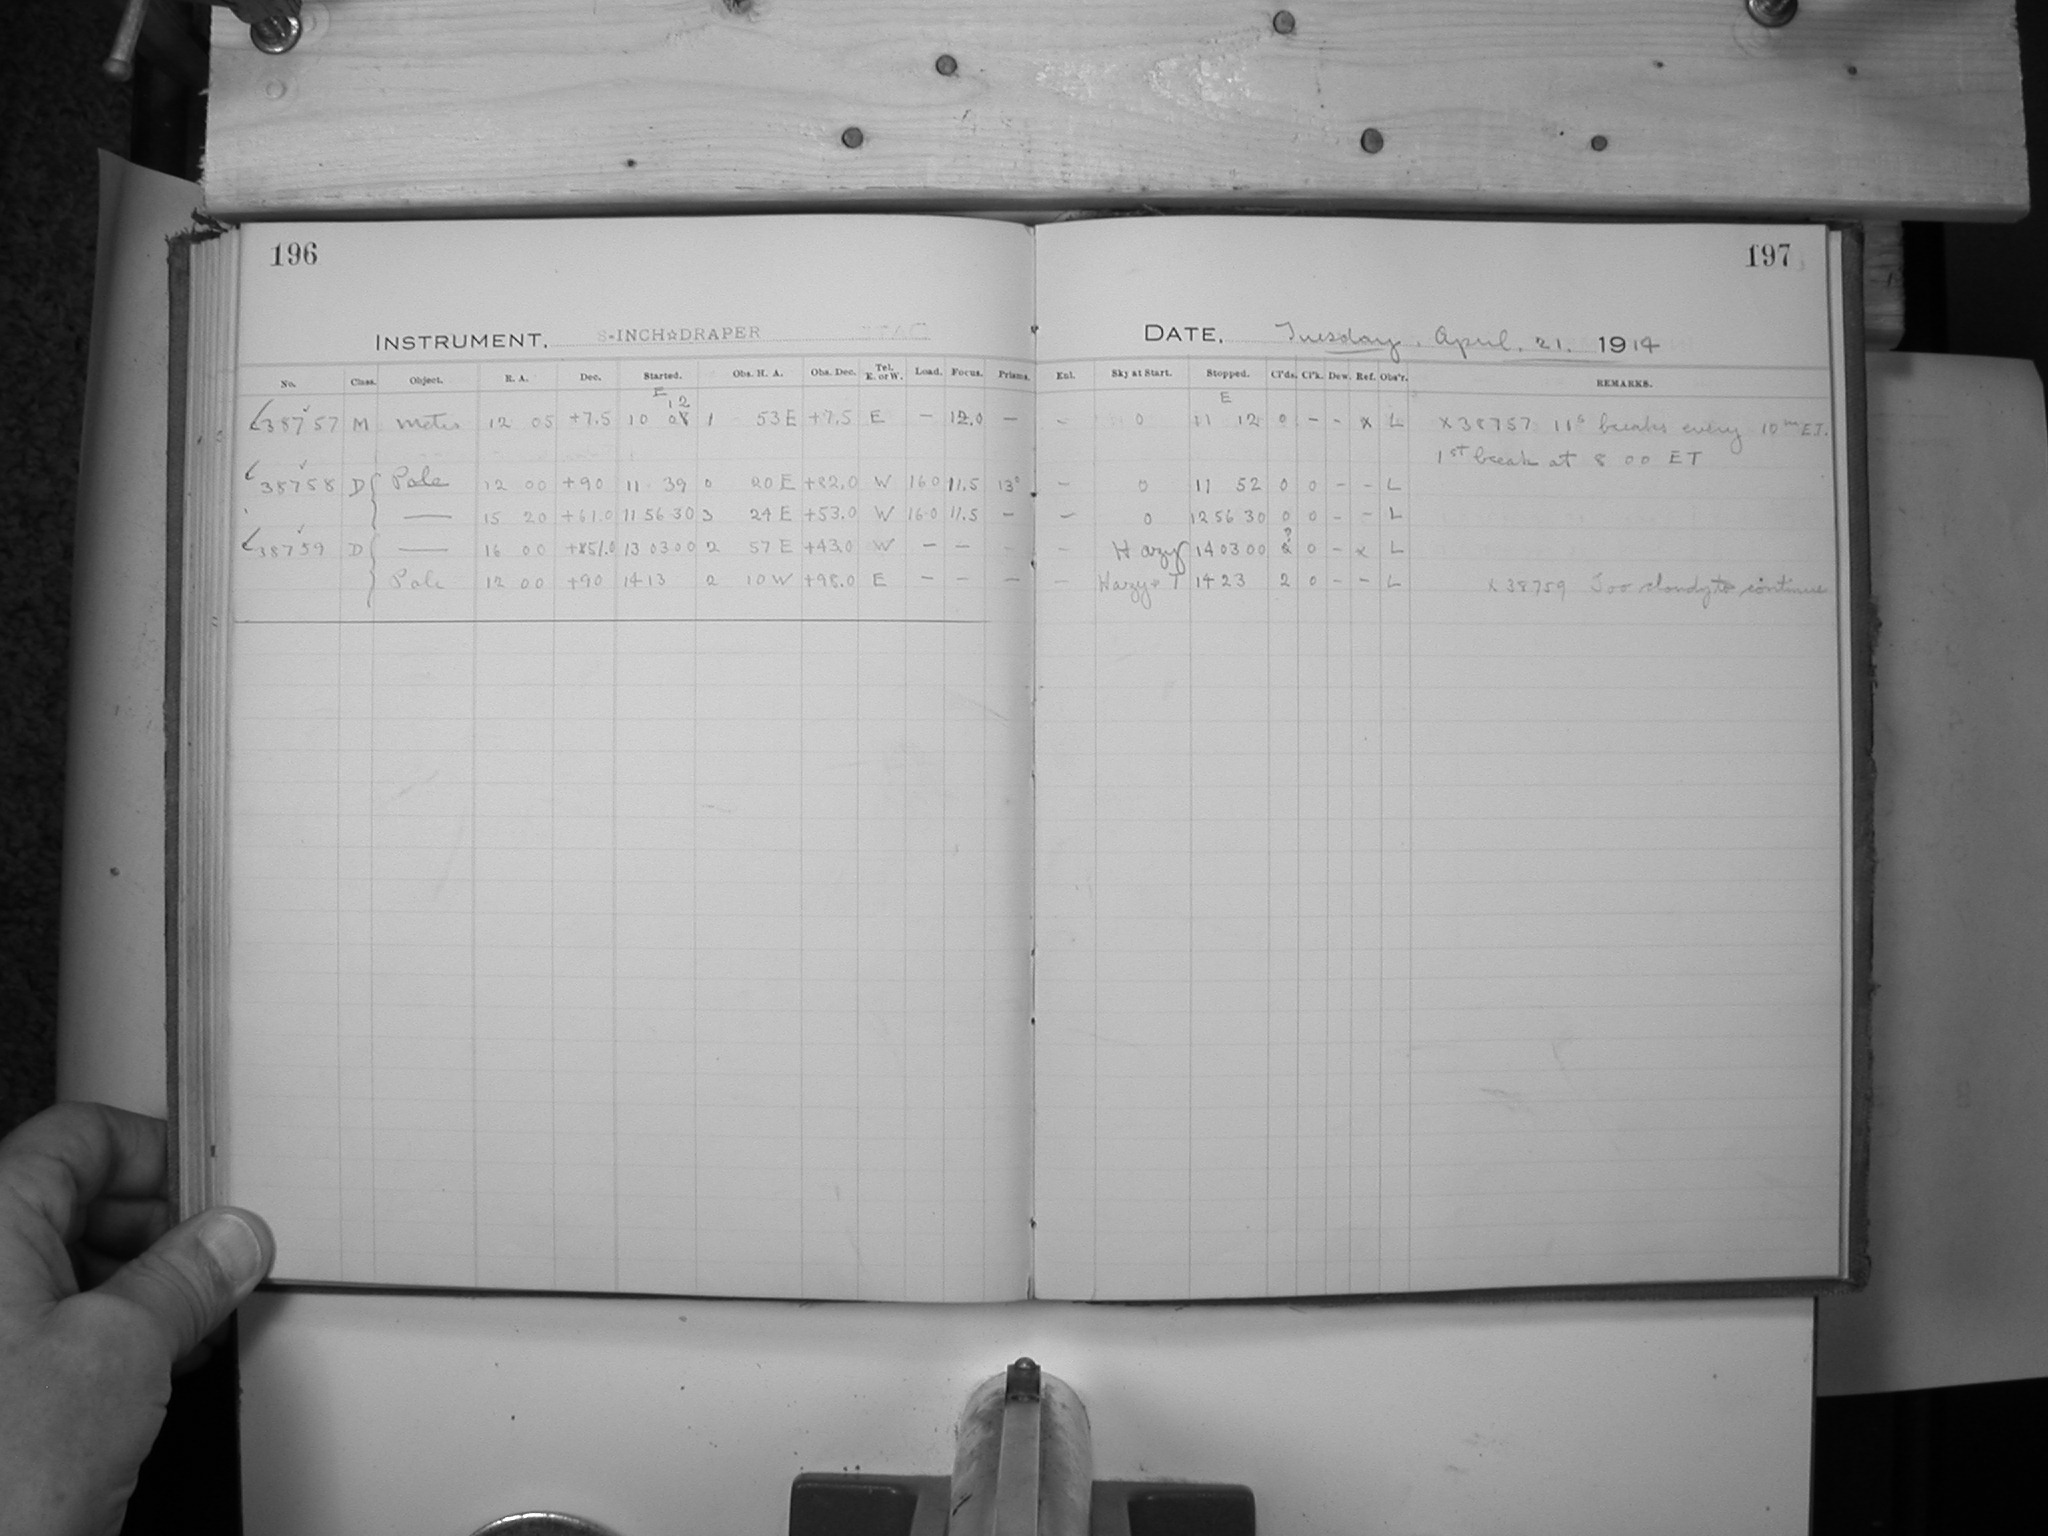 196
197
INSTRUMENT. 8-INCH☆DRAPER
DATE. Tuesday, April. 21. 1914
No. Class. Object. R. A. Dec. Started. Obs. H. A. Obs. Dec. Tel. E. or W. Load. Focus. Prisms.
Exl. Sky at Start. Stopped. Cl'ds. Cl'k. Dew. Ref. Obs'r. REMARKS.
E
12
E
38757 M Metis 12 05 +7.5 10 08 1 53 E +7.5 E — 12.0 — – 0 11 12 0 – – x L x 38757 11 breaks every 10m E.T.
1st break at 8 00 ET
38758 D Pole 12 00 +90 11 39 0 20 E +82.0 W 16.0 11.5 13° – 0 11 52 0 0 – – L
— 15 20 +61.0 11 56 30 3 24 E +53.0 W 16.0 11.5 – – 0 12 56 30 0 0 – – L
38759 D — 16 00 +51.0 13 03 00 2 57 E +43.0 W – – – – Hazy 14 03 00 ? 0 – x L
Pole 12 00 +90 14 13 2 10 W +98.0 E – – – – Hazy + T 14 23 2 0 – – L x 38759 Too cloudy to continue